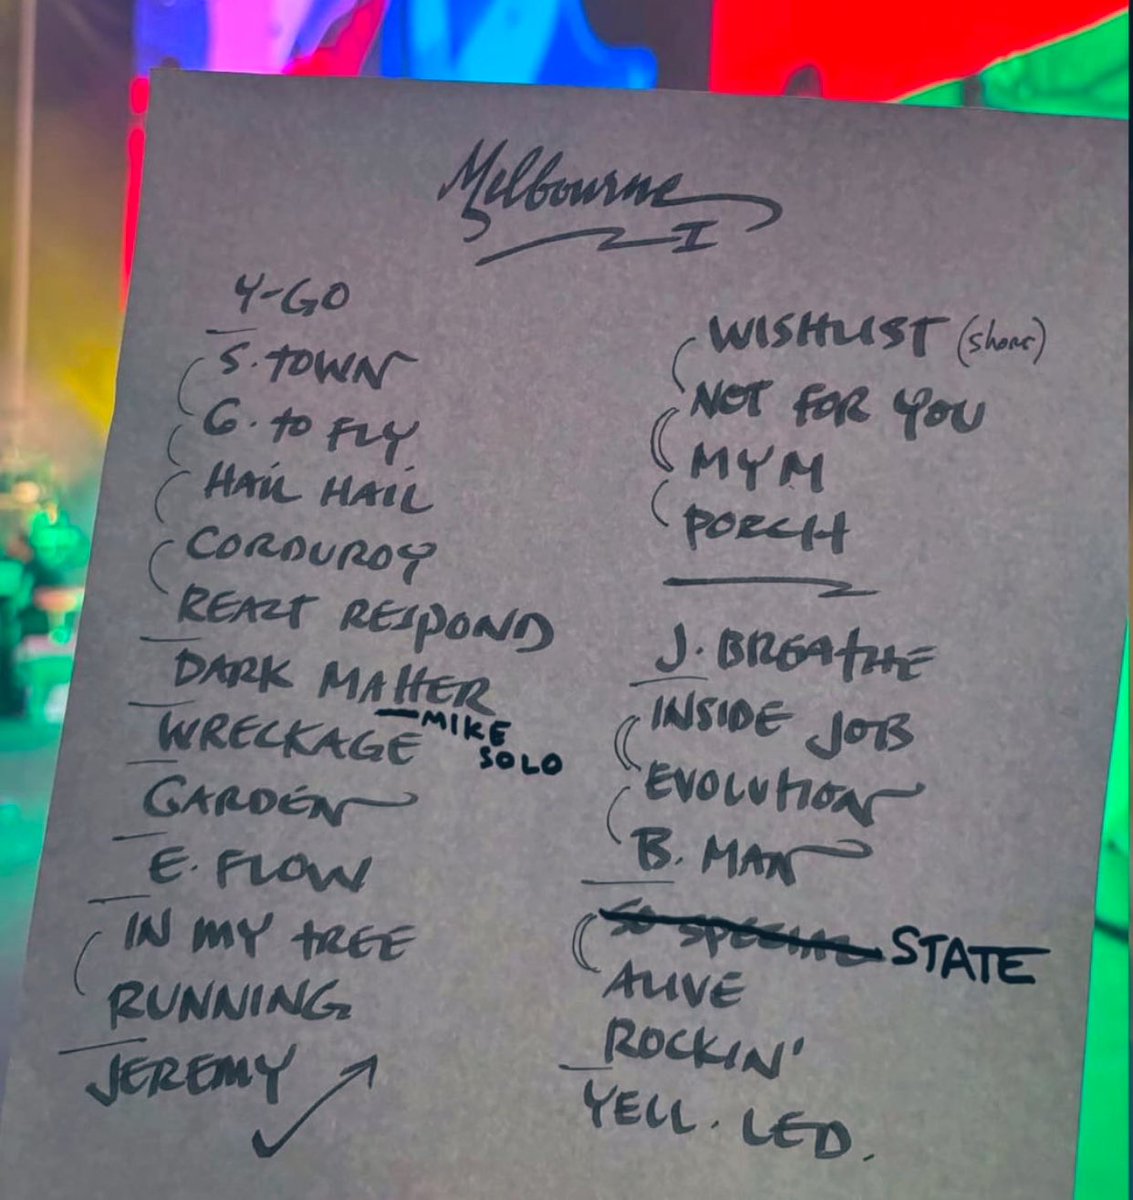 Melbourne
I
Y-GO
S. TOWN
G. to FLY
HAIL HAIL
CORDUROY
REACT RESPOND
DARK MATTER
WRECKAGE —MIKE
SOLO
GARDEN
E. FLOW
IN MY tREE
RUNNING
JEREMY
WISHLIST
NOT FOR YOU
MYM
PORCH
J. BREATHE
INSIDE JOB
EVOLUTION
B. MAN
SO SPECIAL STATE
ALIVE
ROCKIN'
YELL. LED.